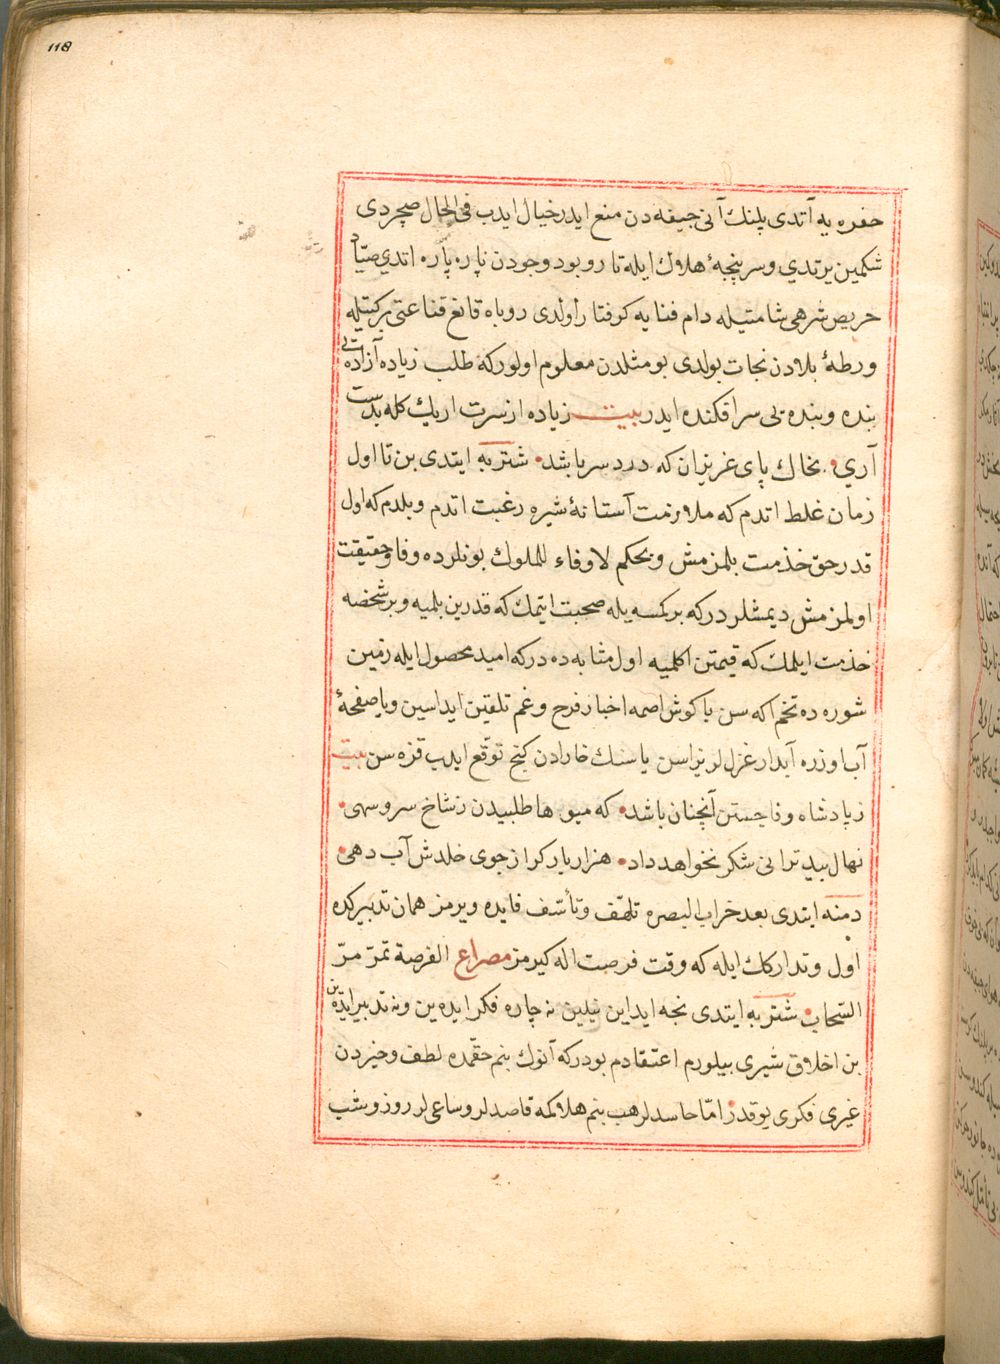 118
حفره یه آتدی پلنك آنی جیفه دن منع ایدر خیال ایدب فی الحال صچردی
شکمین یرتدی و سر پنجهٔ هلاك ایله تار و بود وجودن پاره پاره اتدی صیّاد
حریص شرهی شامتیله دام فنایه کرفتار اولدی روباه قانغ قناعتی برکتیله
ورطهٔ بلادن نجات بولدی بو مثلدن معلوم اولور که طلب زیاده آزاده یی
بنده و بنده یی سرافکنده ایدر بیت زیاده از سرت ار یك کله بدست
آری بخاك پای عزیزان که درد سر باشد شتربه ایتدی بن تا اول
زمان غلط اتدم که ملازمت آستانهٔ شیره رغبت اتدم و بلدم که اول
قدر حق خذمت بلمزمش و بحکم لا وفاء للملوك بونلرده وفا و حقیقت
اولمزمش دیمشلردر که بر کمسه یله صحبت ایتمك که قدرین بلمیه و بر شخصه
خذمت ایلمك که قیمتن اکلمیه اول مثابه ده در که امید محصول ایله زمین
شوره ده تخم اکه سن یا کوش اصمه اخبار فرح و غم تلقین ایداسین و یا صفحهٔ
آب اوزره آبدار غزللر یزاسن یا سنك خارادن کنج توقّع ایدب قزه سن بیت
ز پادشاه وفا جستن آنچنان باشد که میوها طلبیدن ز شاخ سرو سهی
نهال بید ترا نی شکر نخواهد داد هزار بار کر از جوی خلدش آب دهی
دمنه ایتدی بعد خراب البصره تلهّف و تأسّف فایده ویرمز همان تدبیرکده
اول و تدارکك ایله که وقت فرصت اله کیرمز مصراع الفرصة تمرّ مرّ
السّحاب شتربه ایتدی نجه ایداین نیلین نه چاره فکر ایده ین و نه تدبیر ایده ین
بن اخلاق شیری بیلورم اعتقادم بودر که آنوك بنم حقّمده لطف و خیردن
غیری فکری یوقدر امّا حاسدلر هب بنم هلاکمه قاصدلر و ساعیلر روز و شب